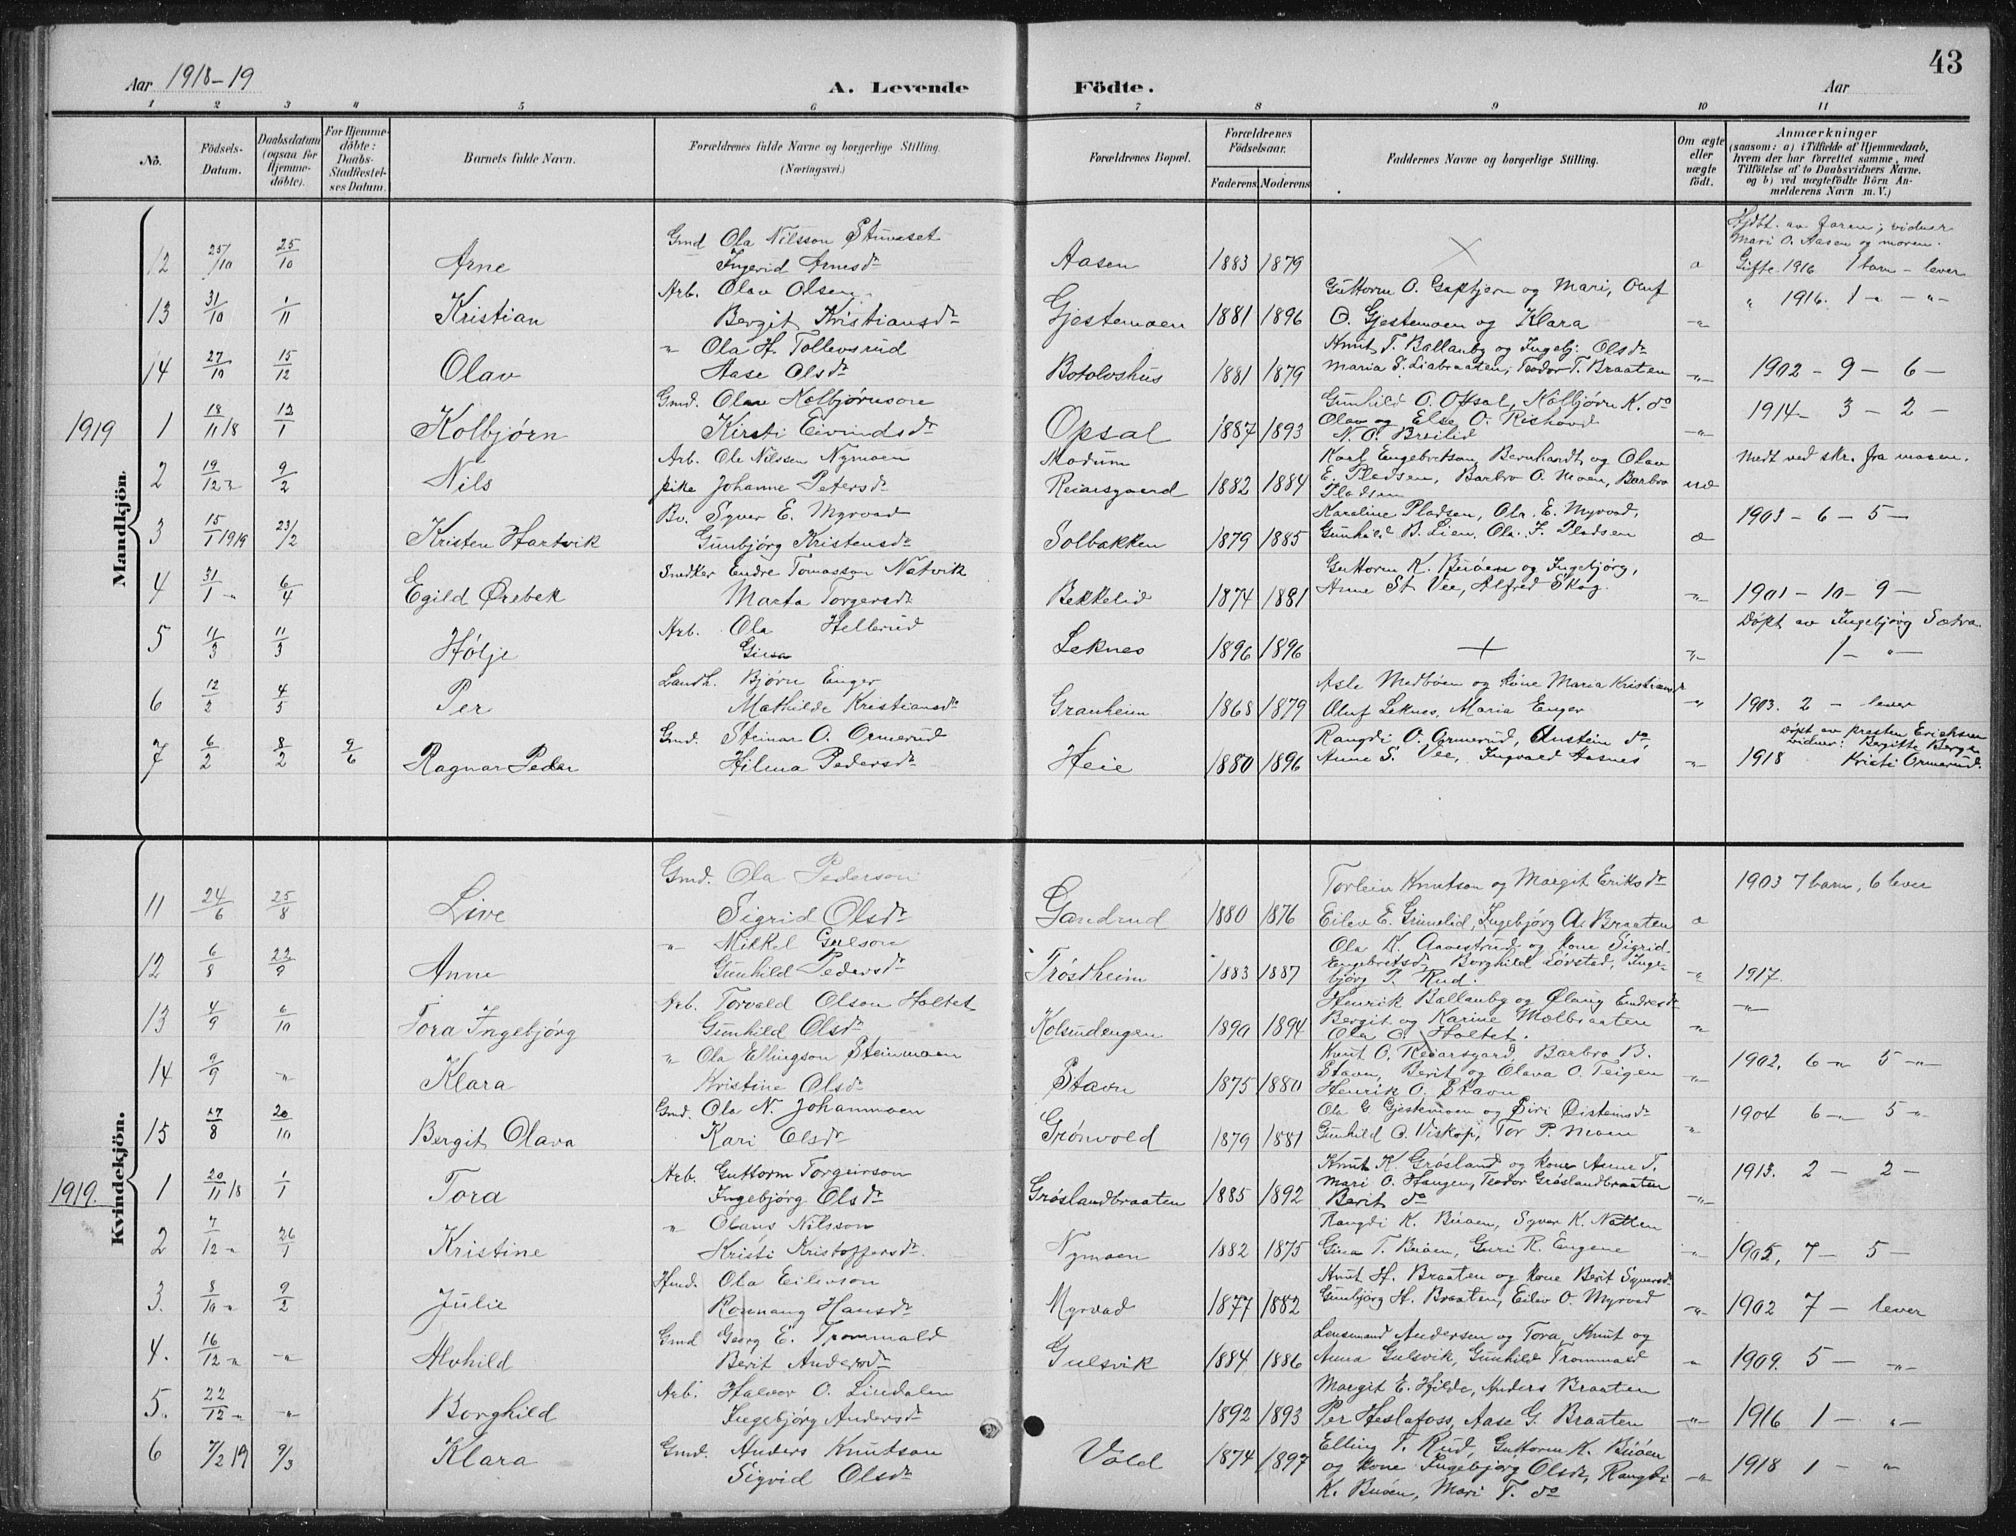 Aar 1918-19 A. Levende Födte. Aar 43
1 2 3 4 5 6 7 8 9 10 11
No.
Födsels-Datum.
Daabsdatum (ogsaa for Hjemme-döbte).
For Hjemme-döbte: Daabs-Stadfæstel-ses Datum.
Barnets fulde Navn.
Forældrenes fulde Navne og borgerlige Stilling.
(Næringsvei.)
Forældrenes Bopæl.
Forældrenes Födselsaar.
Faderens. Moderens
Faddernes Navne og borgerlige Stilling.
Om ægte eller uægte födt.
Anmærkninger
(saasom: a) i Tilfælde af Hjemmedaab, hvem der har forrettet samme, med Tilföielse af to Daabsvidners Navne. og b) ved uægtefödte Börn An-melderens Navn m. V.)
Mandkjön.
12 25/10 25/10 Arne Gmd Ola Nilsson Stuvaset
Ingerid Arnesdr Aasen 1883 1879 × a Hjdbt. av faren; vidner Mari O. Aasen og moren.
Gifte 1916 1 barn - lever
13 31/10 1/11 Kristian Arb. Olav Olsen
Bergit Kristiansdr Gjestemoen 1881 1896 Guttorm O. Gaptjern og Mari, Oluf
O. Gjestemoen og Klara -"- " 1916. 1 " - "-
14 27/10 15/12 Olav " Ola H. Tollevsrud
Aase Olsdr Botolvshus 1881 1879 Knut T. Ballanby og Ingebj. Olsdr
Maria T. Liabraaten, Teodor T. Braaten -"- 1902 - 9 - 6 -
1919 1 18/11 18 12/1 Kolbjørn Gmd. Olav Kolbjørnson
Kirsti Eivindsdr Opsal 1887 1893 Gunhild O. Opsal, Kolbjørn K. do
Olav og Else O. Rishovd
N. O. Breilid -"- 1914 - 3 - 2 -
2 19/12 " 9/2 Nils Arb. Ole Nilssen Nymoen
pike Johanne Petersdr Modum
Reiarsgaard 1882 1884 Karl Engebretson, Bernhardt og Olav
E. Pladsen, Barbro O. Moen, Barbro
Pladsen uæ Medt ved skr. fra moren.
3 15/1 1919 23/2 Kristen Hartvik Bv. Syver E. Myrvad
Gunbjørg Kristensdr Solbakken 1879 1885 Karoline Pladsen, Ole E. Myrvad,
Gunhild B. Lien, Ola I. Pladsen æ 1903 - 6 - 5 -
4 31/1 " 6/4 Egild Ørebek Snedker Endre Tomasson Natvik
Marta Torgersdr Bekkelid 1874 1881 Guttorm K. Buøen og Ingebjørg,
Anne St. Vee, Alfred Skog. " 1901 - 10 - 9 -
5 11/3 11/3 Hølje Arb. Ola Hellerud
Gina Leknes 1896 1896 + "- Døpt av Ingebjørg Sætra
1 - "
6 12/2 4/5 Per Landh. Bjørn Enger
Mathilde Kristiansdr Granheim 1868 1879 Asle Medbøen og kone Maria Kristiansdr
Oluf Leknes, Maria Enger " 1903. 2 - lever
7 6/2 8/2 9/6 Ragnar Peder Gmd. Steinar O. Ormerud
Hilma Pedersdr Heie 1880 1896 Rangdi O. Ormerud, Anstein do,
Anne S. Vee, Ingvald Aasnes " Døpt av presten Erichsen
vidner: Bergitte Berge
1918 Kristi Ormerud.
Kvindekjön.
11 24/6 25/8 Live Gmd. Ola Pederson
Sigrid Olsdr Gandrud 1880 1876 Torleiv Knutson og Margit Eriksdr
Eilev E. Grimelid, Ingebjørg A. Braaten a 1903 7 barn, 6 lever
12 6/8 22/9 Anne " Mikkel Gulson
Gunhild Pedersdr Trøsdheim 1883 1887 Ola K. Aavestrud og kone Sigrid
Engebretsdr, Borghild Sørstad, Inge-
bjørg P. Rud. " 1917
13 4/9 6/10 Tora Ingebjørg Arb. Torvald Olson Holtet
Gunhild Olsdr Kolsrudengen 1890 1894 Henrik Ballanby og Ølaug Endresdr
Bergit og Karine Molbraaten
Ola O. Holtet. " "
14 9/9 " Klara " Ola Ellingson Steinmoen
Kristine Olsdr Stavn 1875 1880 Knut O. Reiarsgard, Barbro B.
Stavn, Berit og Olava O. Teigen
Henrik O. Stavn " 1902, 6 " 5 "
15 17/8 20/10 Bergit Olava Gmd. Ola N. Johanmoen
Kari Olsdr Grønvold 1879 1881 Ola G Gjestemoen og Siri Øisteinsdr
Gunhild O. Viskop, Tor P. Moen " 1904 6 " 5 "
1919. 1 20/11 18 1/1 Tora Arb. Guttorm Torgeirson
Ingebjørg Olsdr Grøslandbraaten 1885 1892 Knut K. Grøsland og kone Anne T.
Mari O. Haugen, Teodor Grøslandbraaten
Berit do " 1913. 2 - 2 -
2 7/12 " 26/1 Kristine " Olaus Nilsson
Kristi Kristoffersdr Nymoen 1882 1875 Rangdi K. Buøen, Syver K. Natten
Gina T. Buøen, Guri R. Eugene " 1905, 7 - 5 -
3. 8/10 " 9/2 Julie Hmd. Ola Eilevson
Rønnaug Hansdr Myrvad 1877 1882 Knut H. Braaten og kone Berit Syversdr
Gunbjørg H. Braaten, Eilev O. Myrvad " 1902 7 - lever
4. 16/12 " " Alvhild Gmd Georg E. Trommald
Berit Andersdr Gulsvik 1884 1886 Lensmand Andersen og Tora, Knut og
Anna Gulsvik, Gunhild Trommald " 1909. 5 - "
5. 22/12 " " Borghild Arb. Halvor O. Lindalen
Ingebjørg Andersdr 1892 1893 Margit E. Hilde, Anders Braaten
Per Heslafoss, Aase G. Braaten " 1916 1 - "
6 7/2 19 9/3 Klara Gmd. Anders Knutson
Sigrid Olsdr Vold 1874 1897 Elling T. Rud, Guttorm K. Buøen
og kone Ingebjørg Olsdr, Rangdi
K. Buøen, Mari T. do " 1918 1 - "